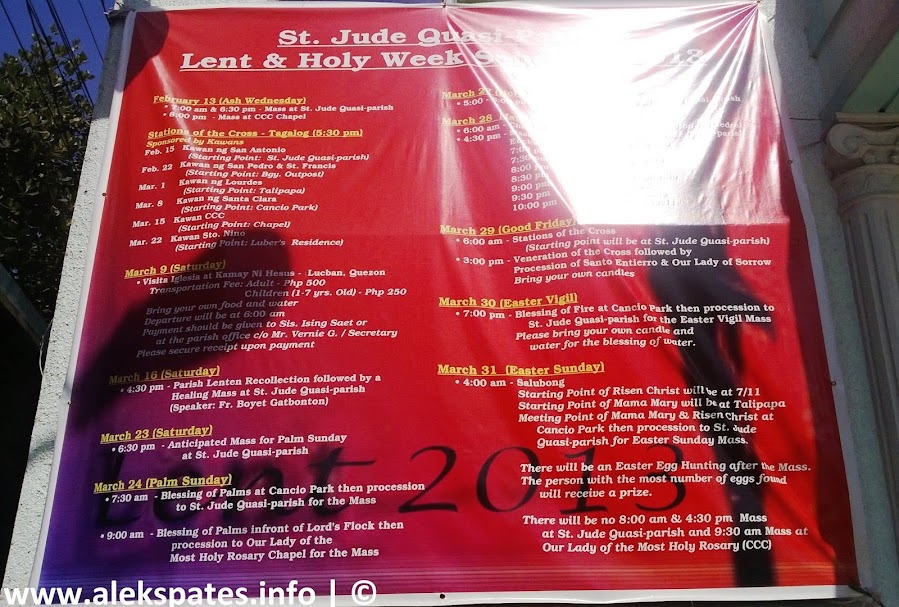 St. Jude Quasi-
Lent & Holy Week
February 13 (Ash Wednesday)
• 7:00 am & 6:30 pm - Mass at St. Jude Quasi-parish
• 6:00 pm - Mass at CCC Chapel
Stations of the Cross - Tagalog (5:30 pm)
Sponsored by Kawans
Feb. 15 Kawan ng San Antonio
(Starting Point: St. Jude Quasi-parish)
Feb. 22 Kawan ng San Pedro & St. Francis
(Starting Point: Bgy. Outpost)
Mar. 1 Kawan ng Lourdes
(Starting Point: Talipapa)
Mar. 8 Kawan ng Santa Clara
(Starting Point: Cancio Park)
Mar. 15 Kawan CCC
(Starting Point: Chapel)
Mar. 22 Kawan Sto. Nino
(Starting Point: Luber's Residence)
March 9 (Saturday)
• Visita Iglesia at Kamay Ni Hesus - Lucban, Quezon
Transportation Fee: Adult - Php 500
Children (1-7 yrs. Old) - Php 250
Bring your own food and water
Departure will be at 6:00 am
Payment should be given to Sis. Ising Saet or
at the parish office c/o Mr. Vernie G. / Secretary
Please secure receipt upon payment
March 16 (Saturday)
• 4:30 pm - Parish Lenten Recollection followed by a
Healing Mass at St. Jude Quasi-parish
(Speaker: Fr. Boyet Gatbonton)
March 23 (Saturday)
• 6:30 pm - Anticipated Mass for Palm Sunday
at St. Jude Quasi-parish
March 24 (Palm Sunday)
• 7:30 am - Blessing of Palms at Cancio Park then procession
to St. Jude Quasi-parish for the Mass
• 9:00 am - Blessing of Palms infront of Lord's Flock then
procession to Our Lady of the
Most Holy Rosary Chapel for the Mass
March 27
• 5:00
March 28
• 6:00 am
• 4:30 pm
8:00
8:30 pm
9:00 pm
9:30 pm
10:00 pm
March 29 (Good Friday)
• 6:00 am - Stations of the Cross
(Starting point will be at St. Jude Quasi-parish)
• 3:00 pm - Veneration of the Cross followed by
Procession of Santo Entierro & Our Lady of Sorrow
Bring your own candles
March 30 (Easter Vigil)
• 7:00 pm - Blessing of Fire at Cancio Park then procession to
St. Jude Quasi-parish for the Easter Vigil Mass
Please bring your own candle and
water for the blessing of water.
March 31 (Easter Sunday)
• 4:00 am - Salubong
Starting Point of Risen Christ will be at 7/11
Starting Point of Mama Mary will be at Talipapa
Meeting Point of Mama Mary & Risen Christ at
Cancio Park then procession to St. Jude
Quasi-parish for Easter Sunday Mass.
There will be an Easter Egg Hunting after the Mass.
The person with the most number of eggs found
will receive a prize.
There will be no 8:00 am & 4:30 pm Mass
at St. Jude Quasi-parish and 9:30 am Mass at
Our Lady of the Most Holy Rosary (CCC)
Lent 2013
www.alekspates.info | ©